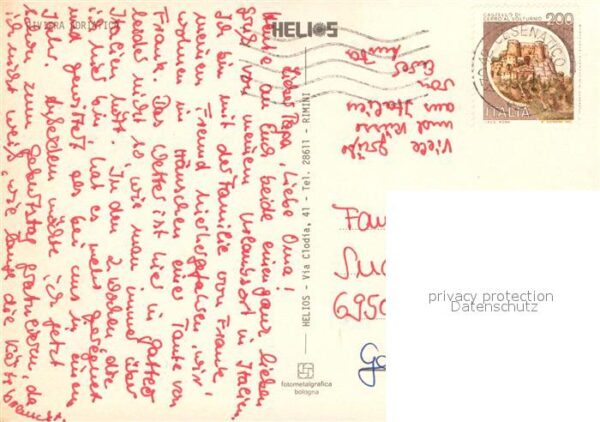 RIVIERA ADRIATICA
HELIOS
Papa, Liebe Oma!
Sende an Euch beide einen ganz lieben
Gruß von meinem Urlaubsort in Italien.
Ich bin mit der Familie von Frank,
meinem Freund hierhergefahren, wir
wohnen im Häuschen einer Tante von
Frank. Das Wetter ist hier in Gatteo
leider nicht so wie man immer über
Italien hört. In den 2 Wochen die
ich hier bin hat es mehr geregnet
und gewittert als bei uns in einem
Jahr. Außerdem möchte ich jetzt
schon zum Geburtstag gratulieren, da
ich nicht weiß, wie lange die Karte braucht.
Viele Grüße
und Küsse
aus Italien
Eure
HELIOS - Via Clodia, 41 - Tel. 28611 - RIMINI
fotometalgrafica
bologna
CERRO AL VOLTURNO
200
ITALIA
CESENATICO
Fam
695
privacy protection
Datenschutz